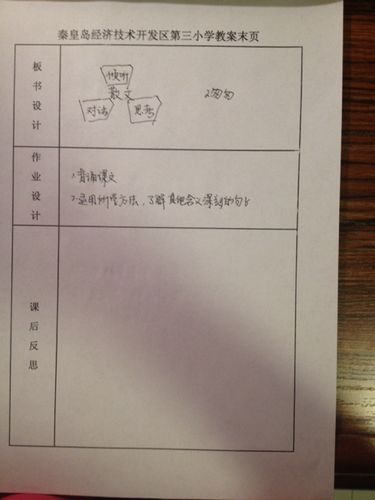 秦皇岛经济技术开发区第三小学教案末页
板书设计
倾听
散文
2匆匆
对话
思考
作业设计
1.背诵课文
2.运用所学方法，了解其他含义深刻的句子
课后反思